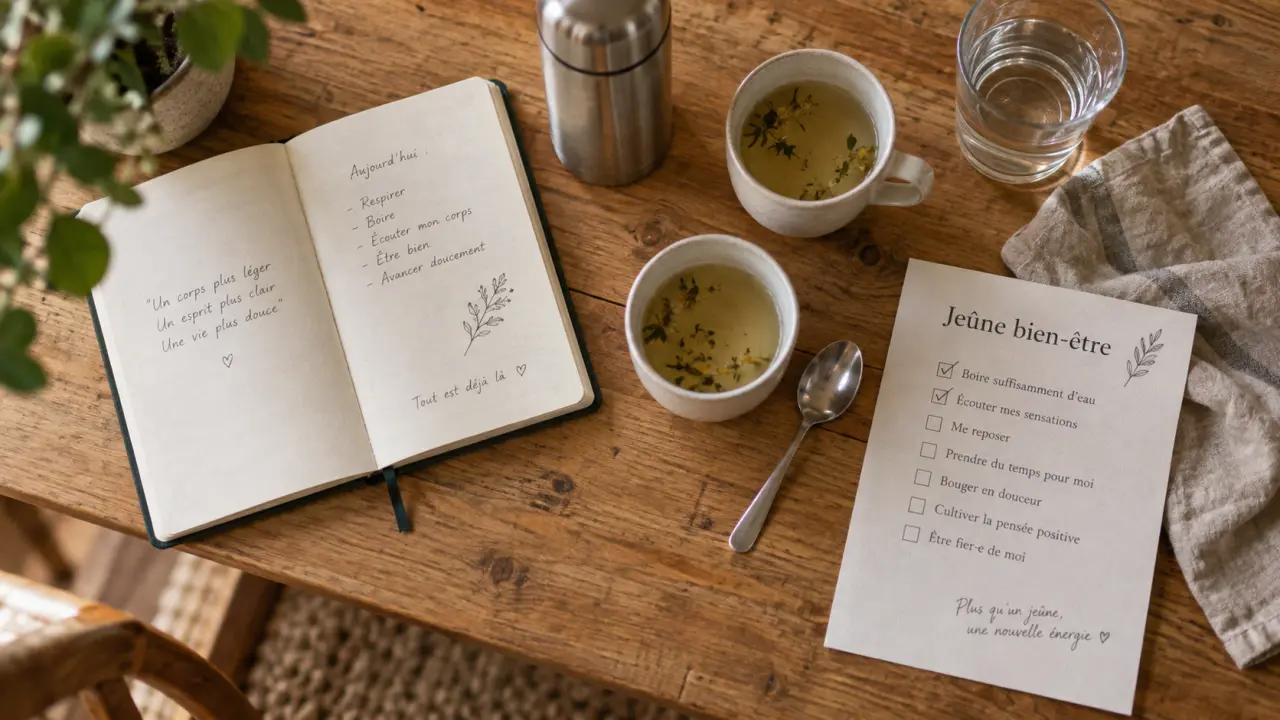 "Un corps plus léger
Un esprit plus clair
Une vie plus douce"
♡
Aujourd'hui :
- Respirer
- Boire
- Écouter mon corps
- Être bien
- Avancer doucement
Tout est déjà là ♡
Jeûne bien-être
☑ Boire suffisamment d'eau
☑ Écouter mes sensations
☐ Me reposer
☐ Prendre du temps pour moi
☐ Bouger en douceur
☐ Cultiver la pensée positive
☐ Être fier·e de moi
Plus qu'un jeûne,
une nouvelle énergie ♡